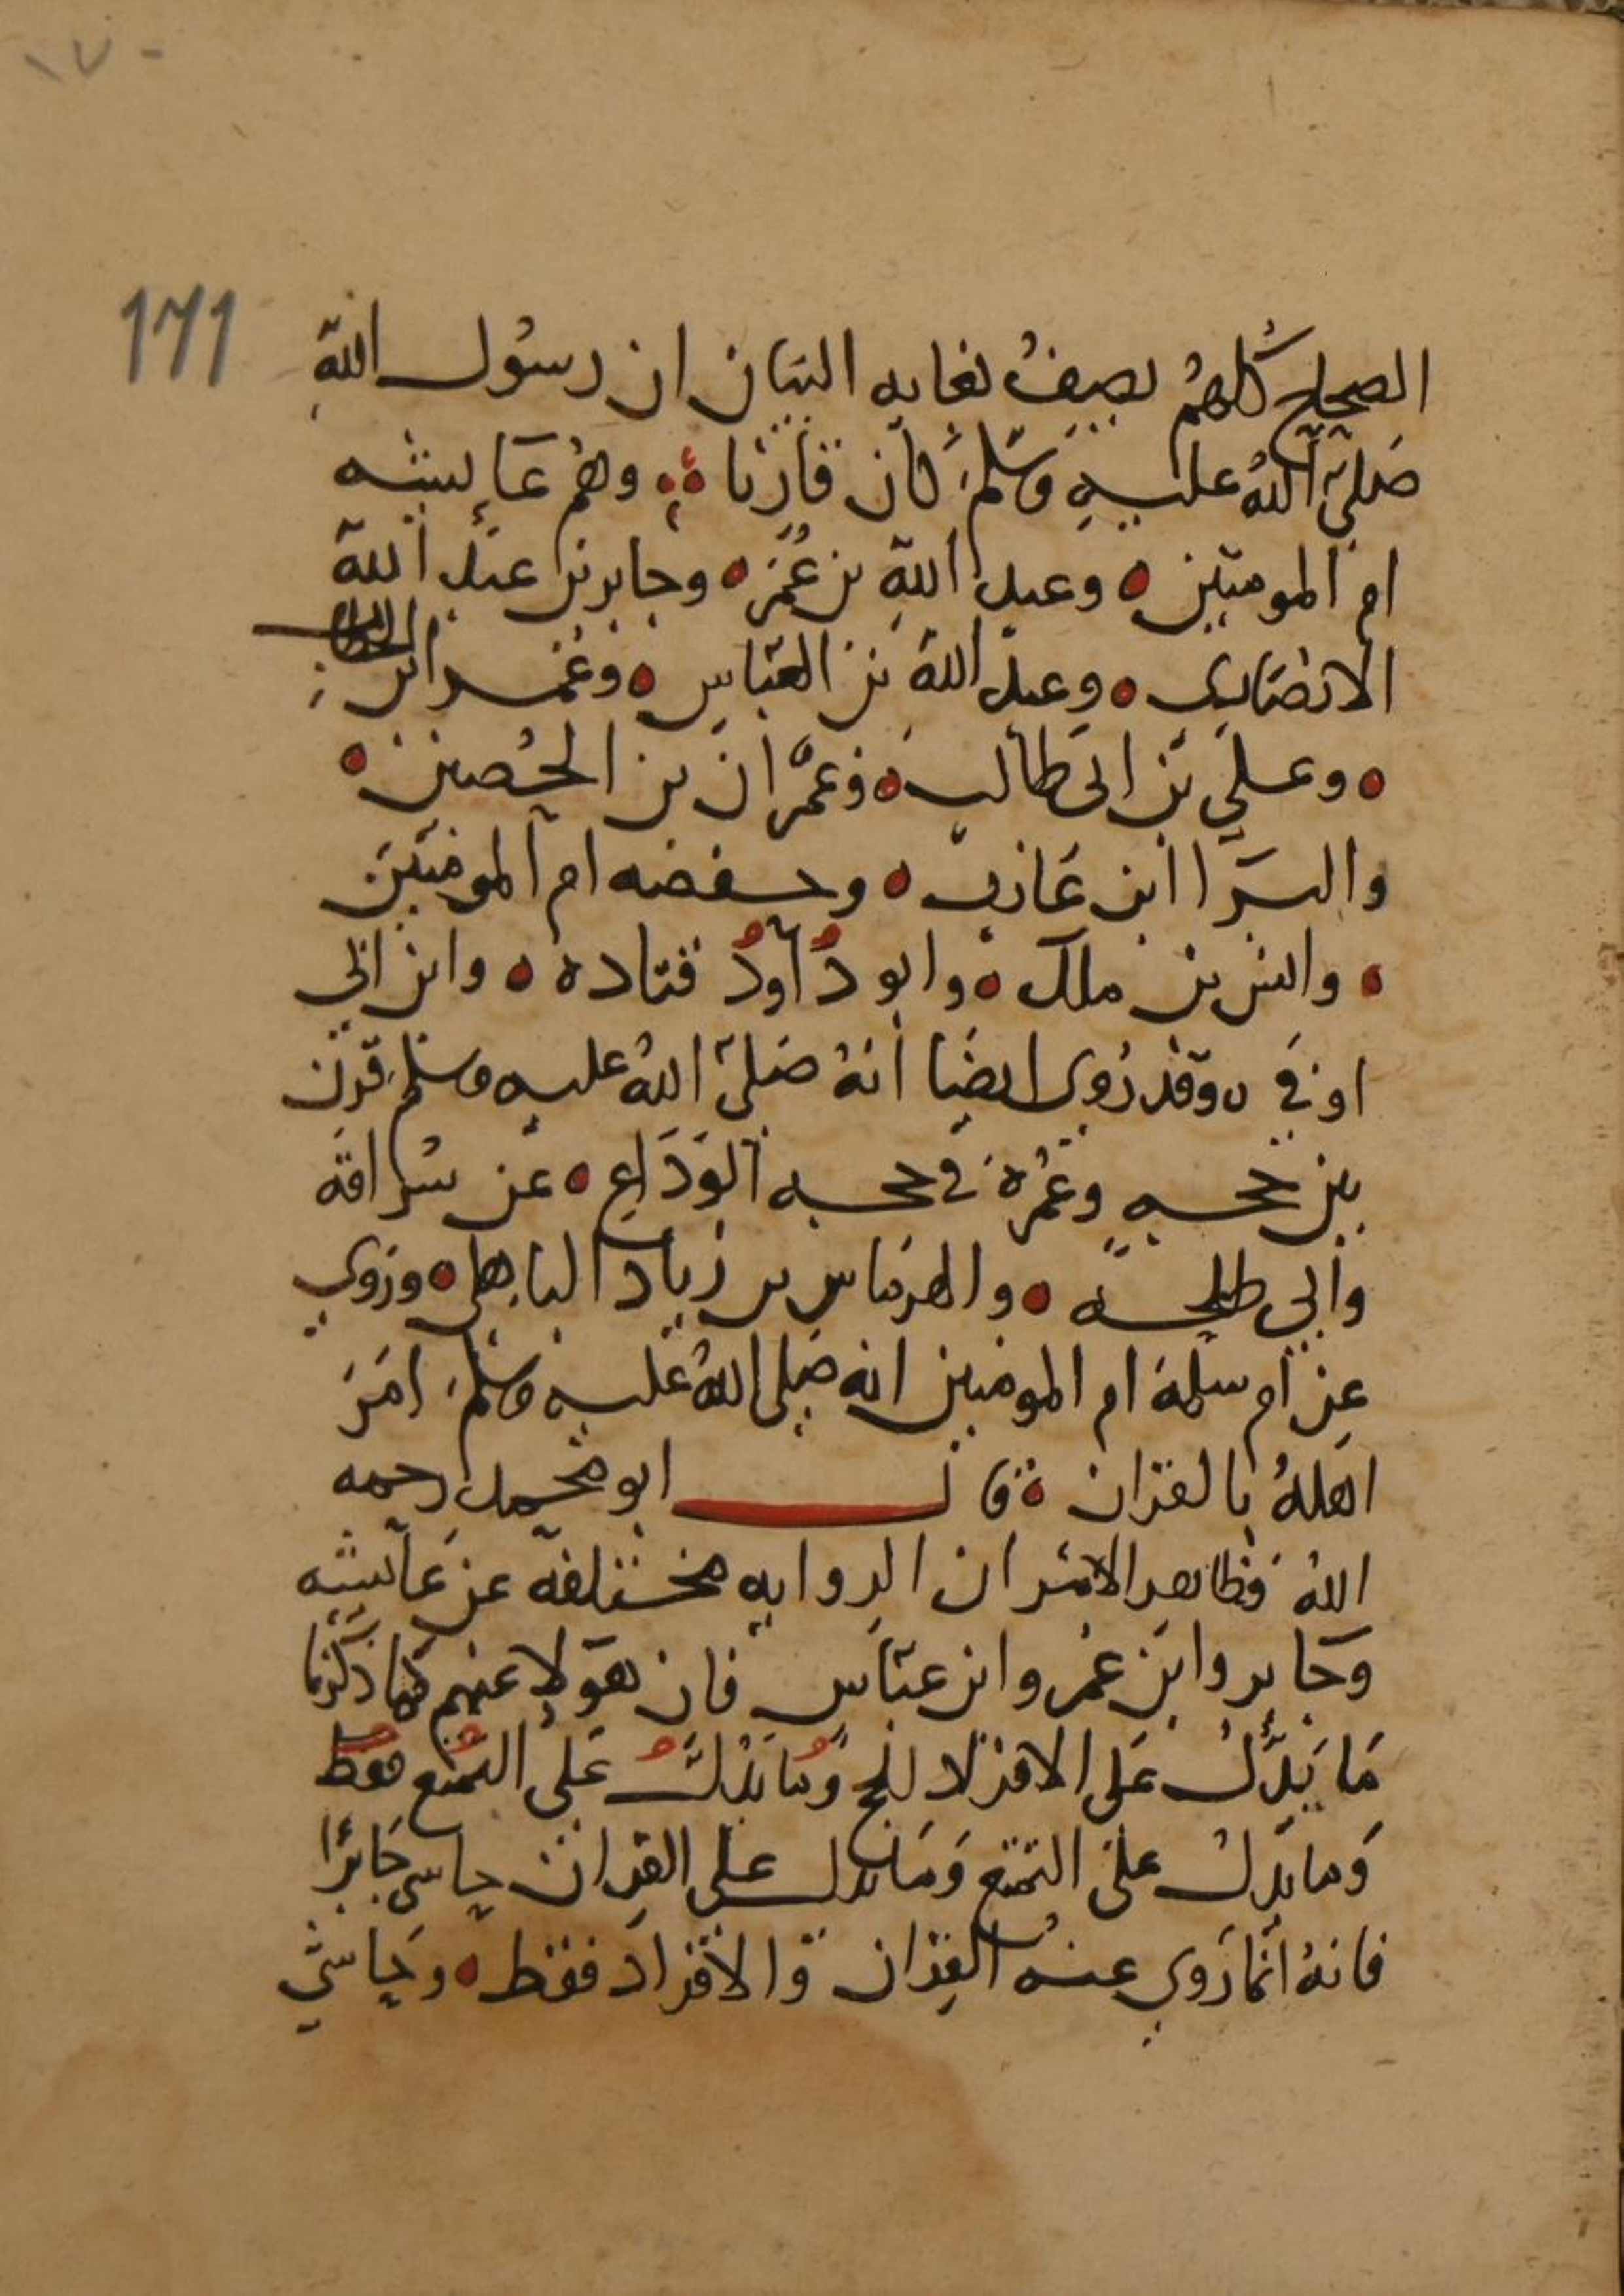 ١٧٠
171
الصحاح كلهم يصف بغايه البيان ان رسول الله
صلى الله عليه وسلم كان قارنا وهم عايشه
ام المومنين وعبد الله بن عمر وجابر بن عبد الله
الانصاري وعبد الله بن العباس وعمر ابن الخطاب
وعلي بن ابي طالب وعمران بن الحصين
والبرا ابن عازب وحفصه ام المومنين
وانس بن ملك وابو داود قتاده وابن ابي
اوفي وقد روي ايضا انه صلى الله عليه وسلم قرن
بين حجه وعمرة في حجه الوداع عن سراقة
وابي طلحه والهرماس بن زياد الباهلي وروي
عن ام سلمة ام المومنين انه صلى الله عليه وسلم امر
اهله بالقران قال ابو محمد رحمه
الله فظاهر الامر ان الروايه مختلفة عن عايشه
وجابر وابن عمر وابن عباس فان هولا عنهم كما ذكرنا
ما يدل على الافراد للحج وما يدل على التمتع فقط
وما يدل على التمتع وما يدل على القران حاسى جابرا
فانه انما روي عنه القران والافراد فقط وحاشي